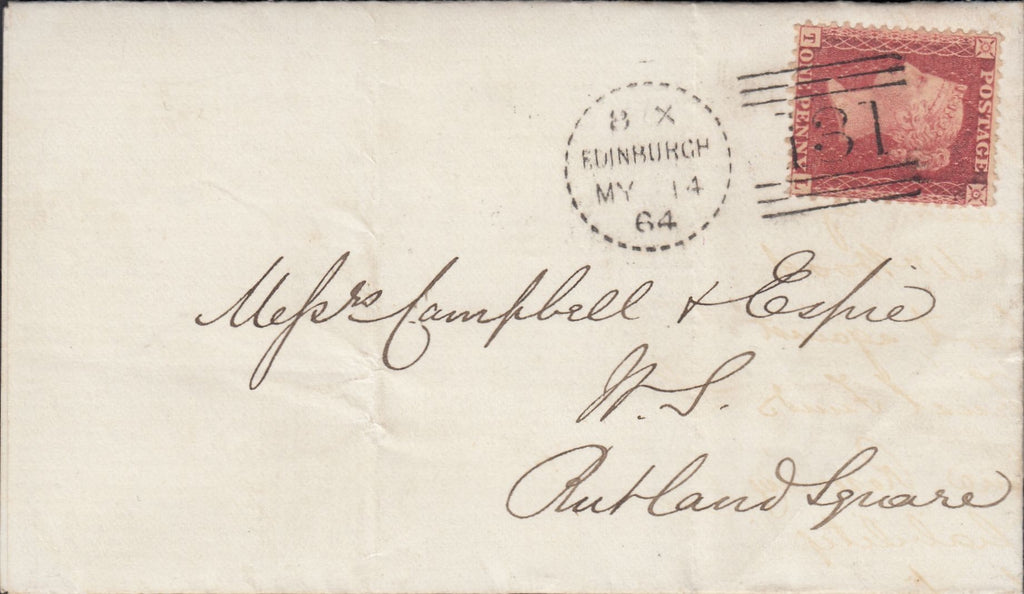 8 X
EDINBURGH
MY 14
64
131
POSTAGE
T ONE PENNY L
Messrs Campbell & Espie
W. S.
Rutland Square